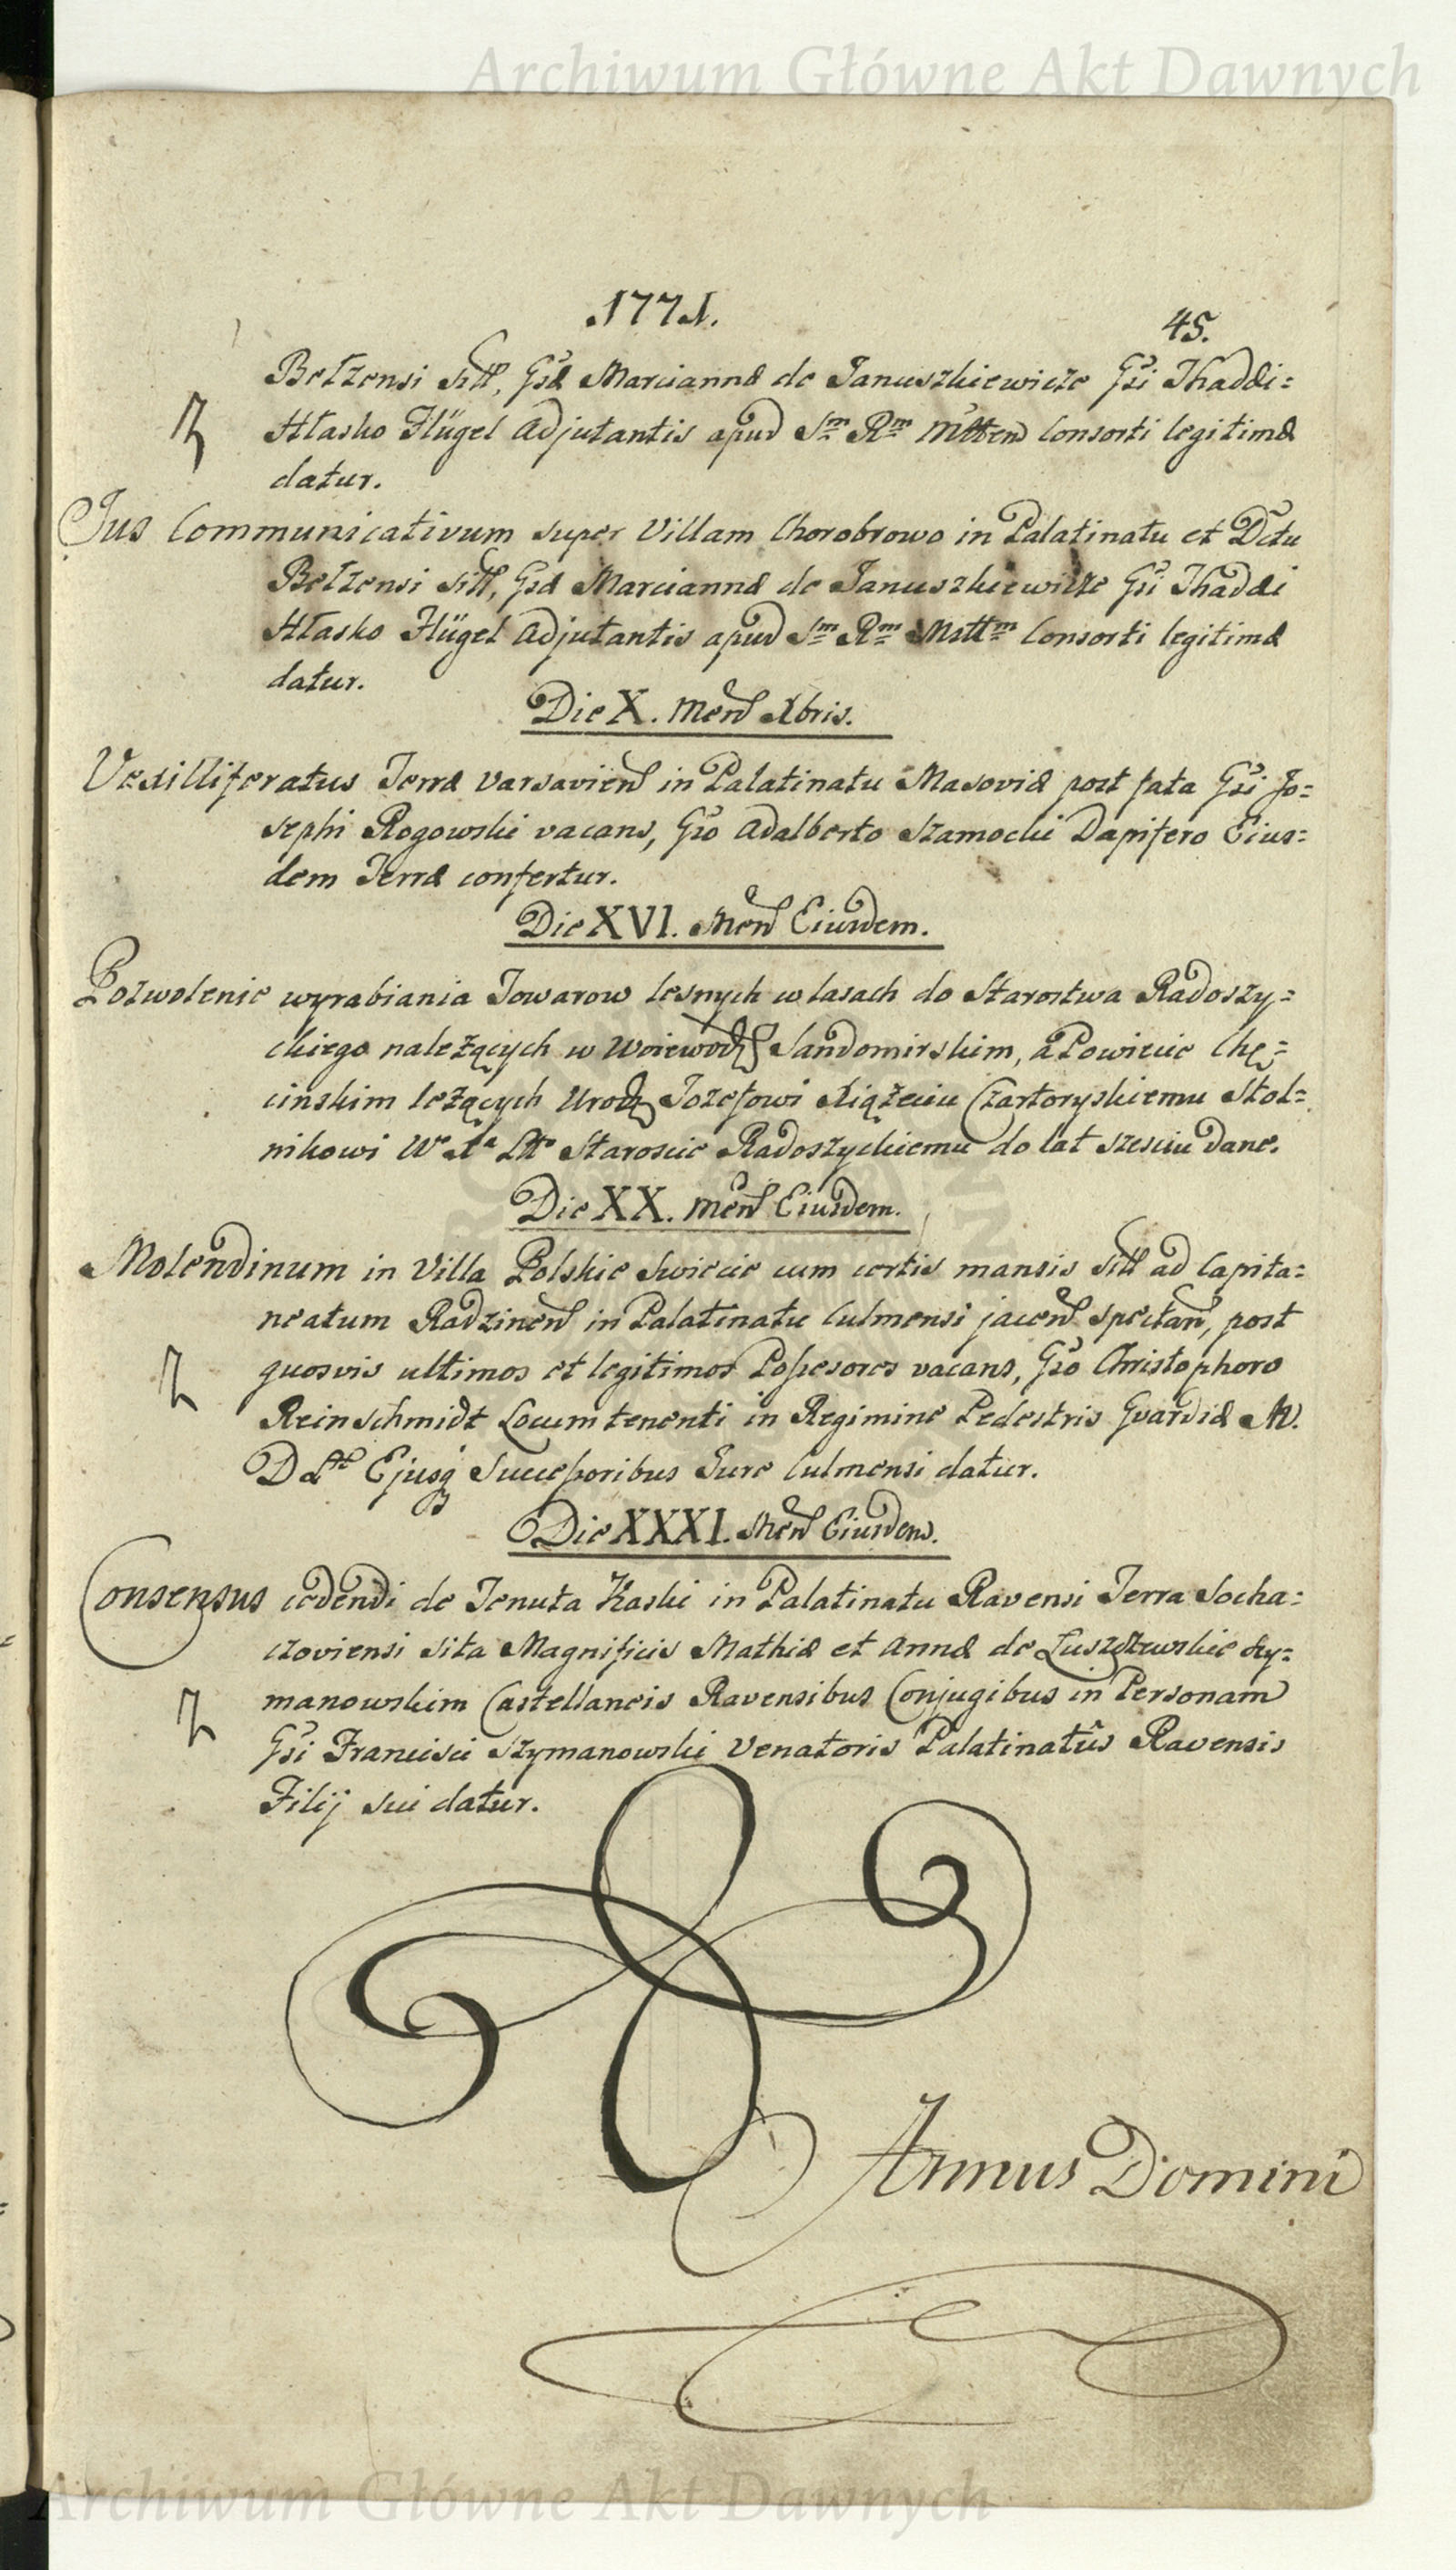 Archiwum Główne Akt Dawnych
.1771.
45.
Bełzensi sitt, Gsæ Mariannæ de Januszkiewicze Gsi Thaddæi=
Hłasko Flügel Adjutantis apud Sm Rm Mttem Consorti legitimæ
datur.
Jus Communicativum super Villam Chorobrowo in Palatinatu et Dctu
Bełzensi sitt, Gsæ Mariannæ de Januszkiewicze Gsi Thaddæi
Hłasko Flügel Adjutantis apud Sm Rm Mttm Consorti legitimæ
datur.
Die X. Mens Xbris.
Vexilliferatus Terræ Varsavien in Palatinatu Masoviæ post fata Gsi Jo=
sephi Rogowski vacans, Gso Adalberto Szamocki Dapifero Eius=
dem Terræ confertur.
Die XVI. Mens Eiusdem.
Pozwolenie wyrabiania Towarow lesnych w lasach do Starostwa Radoszy=
ckiego należących w Woiewodz Sandomirskim, a Powiecie Chę=
cinskim leżących Urodz Jozefowi Xiążęciu Czartoryskiemu Stol=
nikowi W Xa Litto Staroscie Radoszyckiemu do lat szesciu dane.
Die XX. Mens Eiusdem.
Molendinum in Villa Polskie Swiecie cum certis mansis sitt ad Capita=
neatum Radzinen in Palatinatu Culmensi jacen spectan, post
quosvis ultimos et legitimos Possesores vacans, Gso Christophoro
Reinschmidt Locumtenenti in Regimine Pedestris Guardiæ M.
D. Ejusq Successoribus Jure Culmensi datur.
Die XXXI. Mens Eiusdem.
Consensus cedendi de Tenuta Kaski in Palatinatu Ravensi Terra Socha=
czoviensi sita Magnificis Mathiæ et Annæ de Luszczewskie Szy=
manowskim Castellaneis Ravensibus Conjugibus in Personam
Gsi Francisci Szymanowski Venatoris Palatinatûs Ravensis
Filij sui datur.
Annus Domini
Archiwum Główne Akt Dawnych